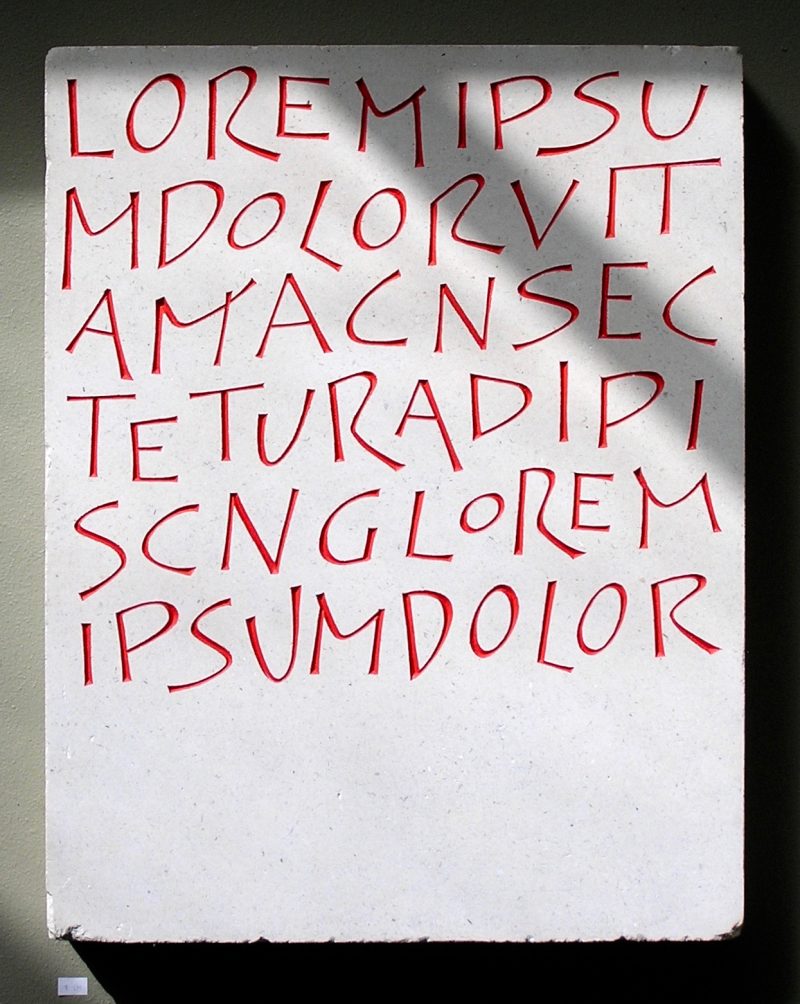 LOREMIPSU
MDOLORVIT
AMACNSEC
TETURADIPI
SCNGLOREM
IPSUMDOLOR